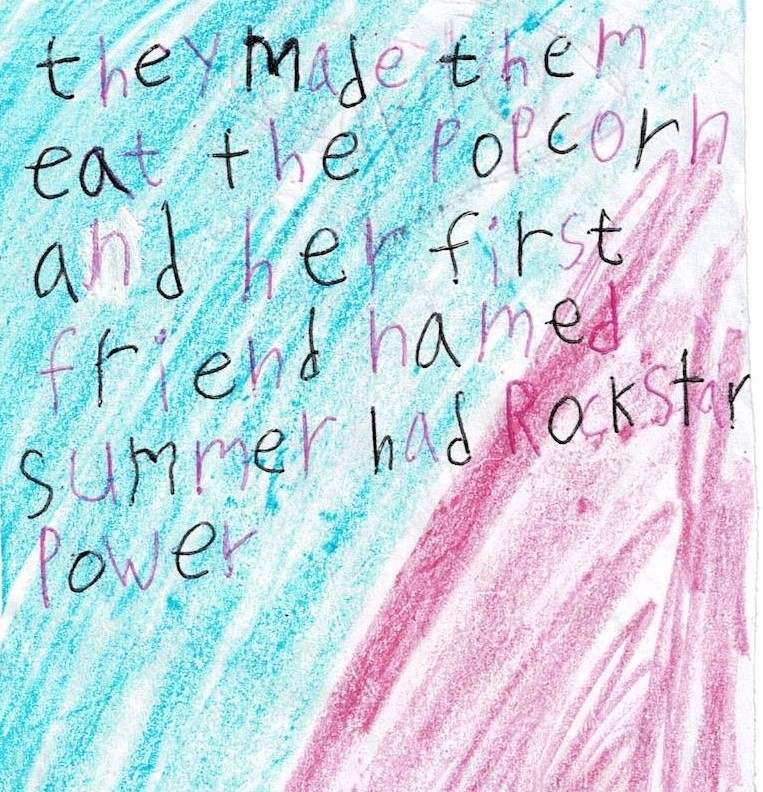 they made them
eat the popcorn
and her first
friend named
summer had Rockstar
Power